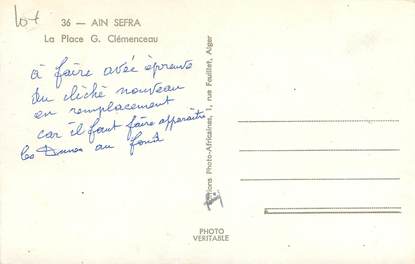 lot
36 — AIN SEFRA
La Place G. Clémenceau
à faire avec épreuve
du cliché nouveau
en remplacement
car il faut faire apparaître
les Dunes au fond
Editions Photo-Africaines, 1, rue Feuillet, Alger
PHOTO
VERITABLE